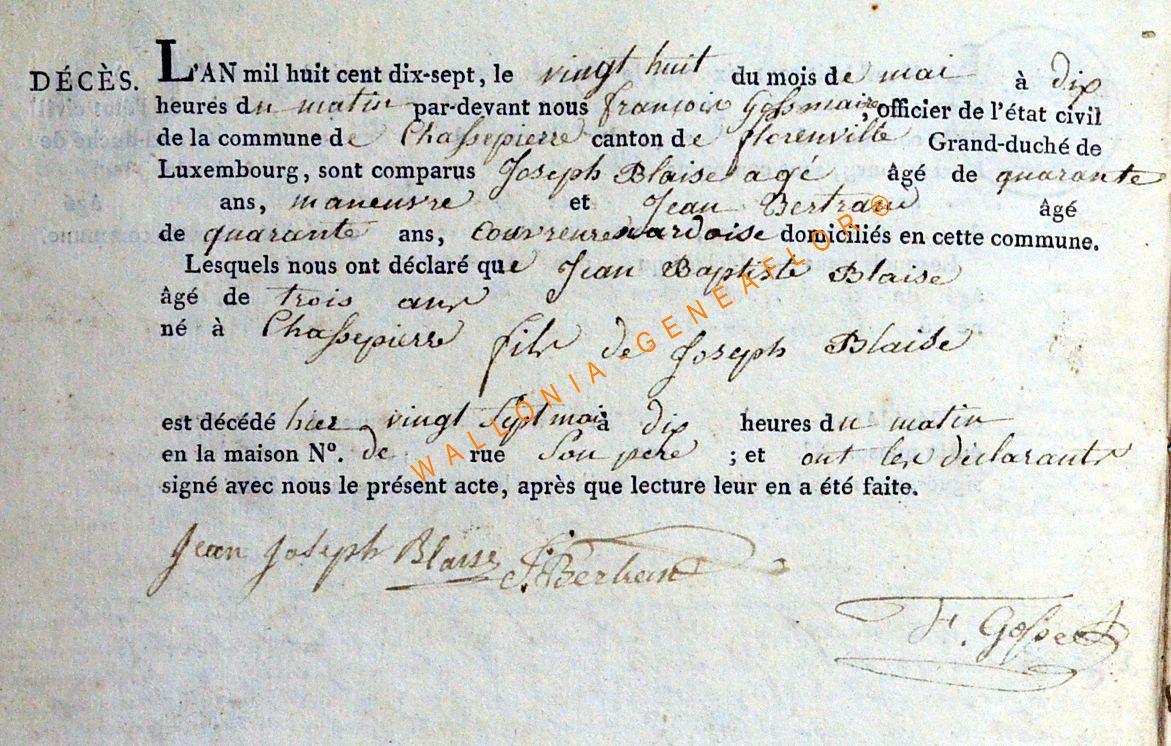 DÉCÈS. L'AN mil huit cent dix-sept, le vingt huit du mois de mai à dix
heures du matin par-devant nous françois Goss maire, officier de l'état civil
de la commune de Chassepierre canton de florenville Grand-duché de
Luxembourg, sont comparus Joseph Blaise agé âgé de quarante
ans, maneuvre et Jean Bertrand âgé
de quarante ans, couvreur en ardoise domiciliés en cette commune.
Lesquels nous ont déclaré que Jean Baptiste Blaise
âgé de trois ans
né à Chassepierre fils de Joseph Blaise
est décédé hier vingt sept mai à dix heures du matin
en la maison N°. de rue son pere ; et ont les déclarants
signé avec nous le présent acte, après que lecture leur en a été faite.
Jean Joseph Blaise J. Bertrand
F. Goss
WALLONIA-GENEAFLOR ©